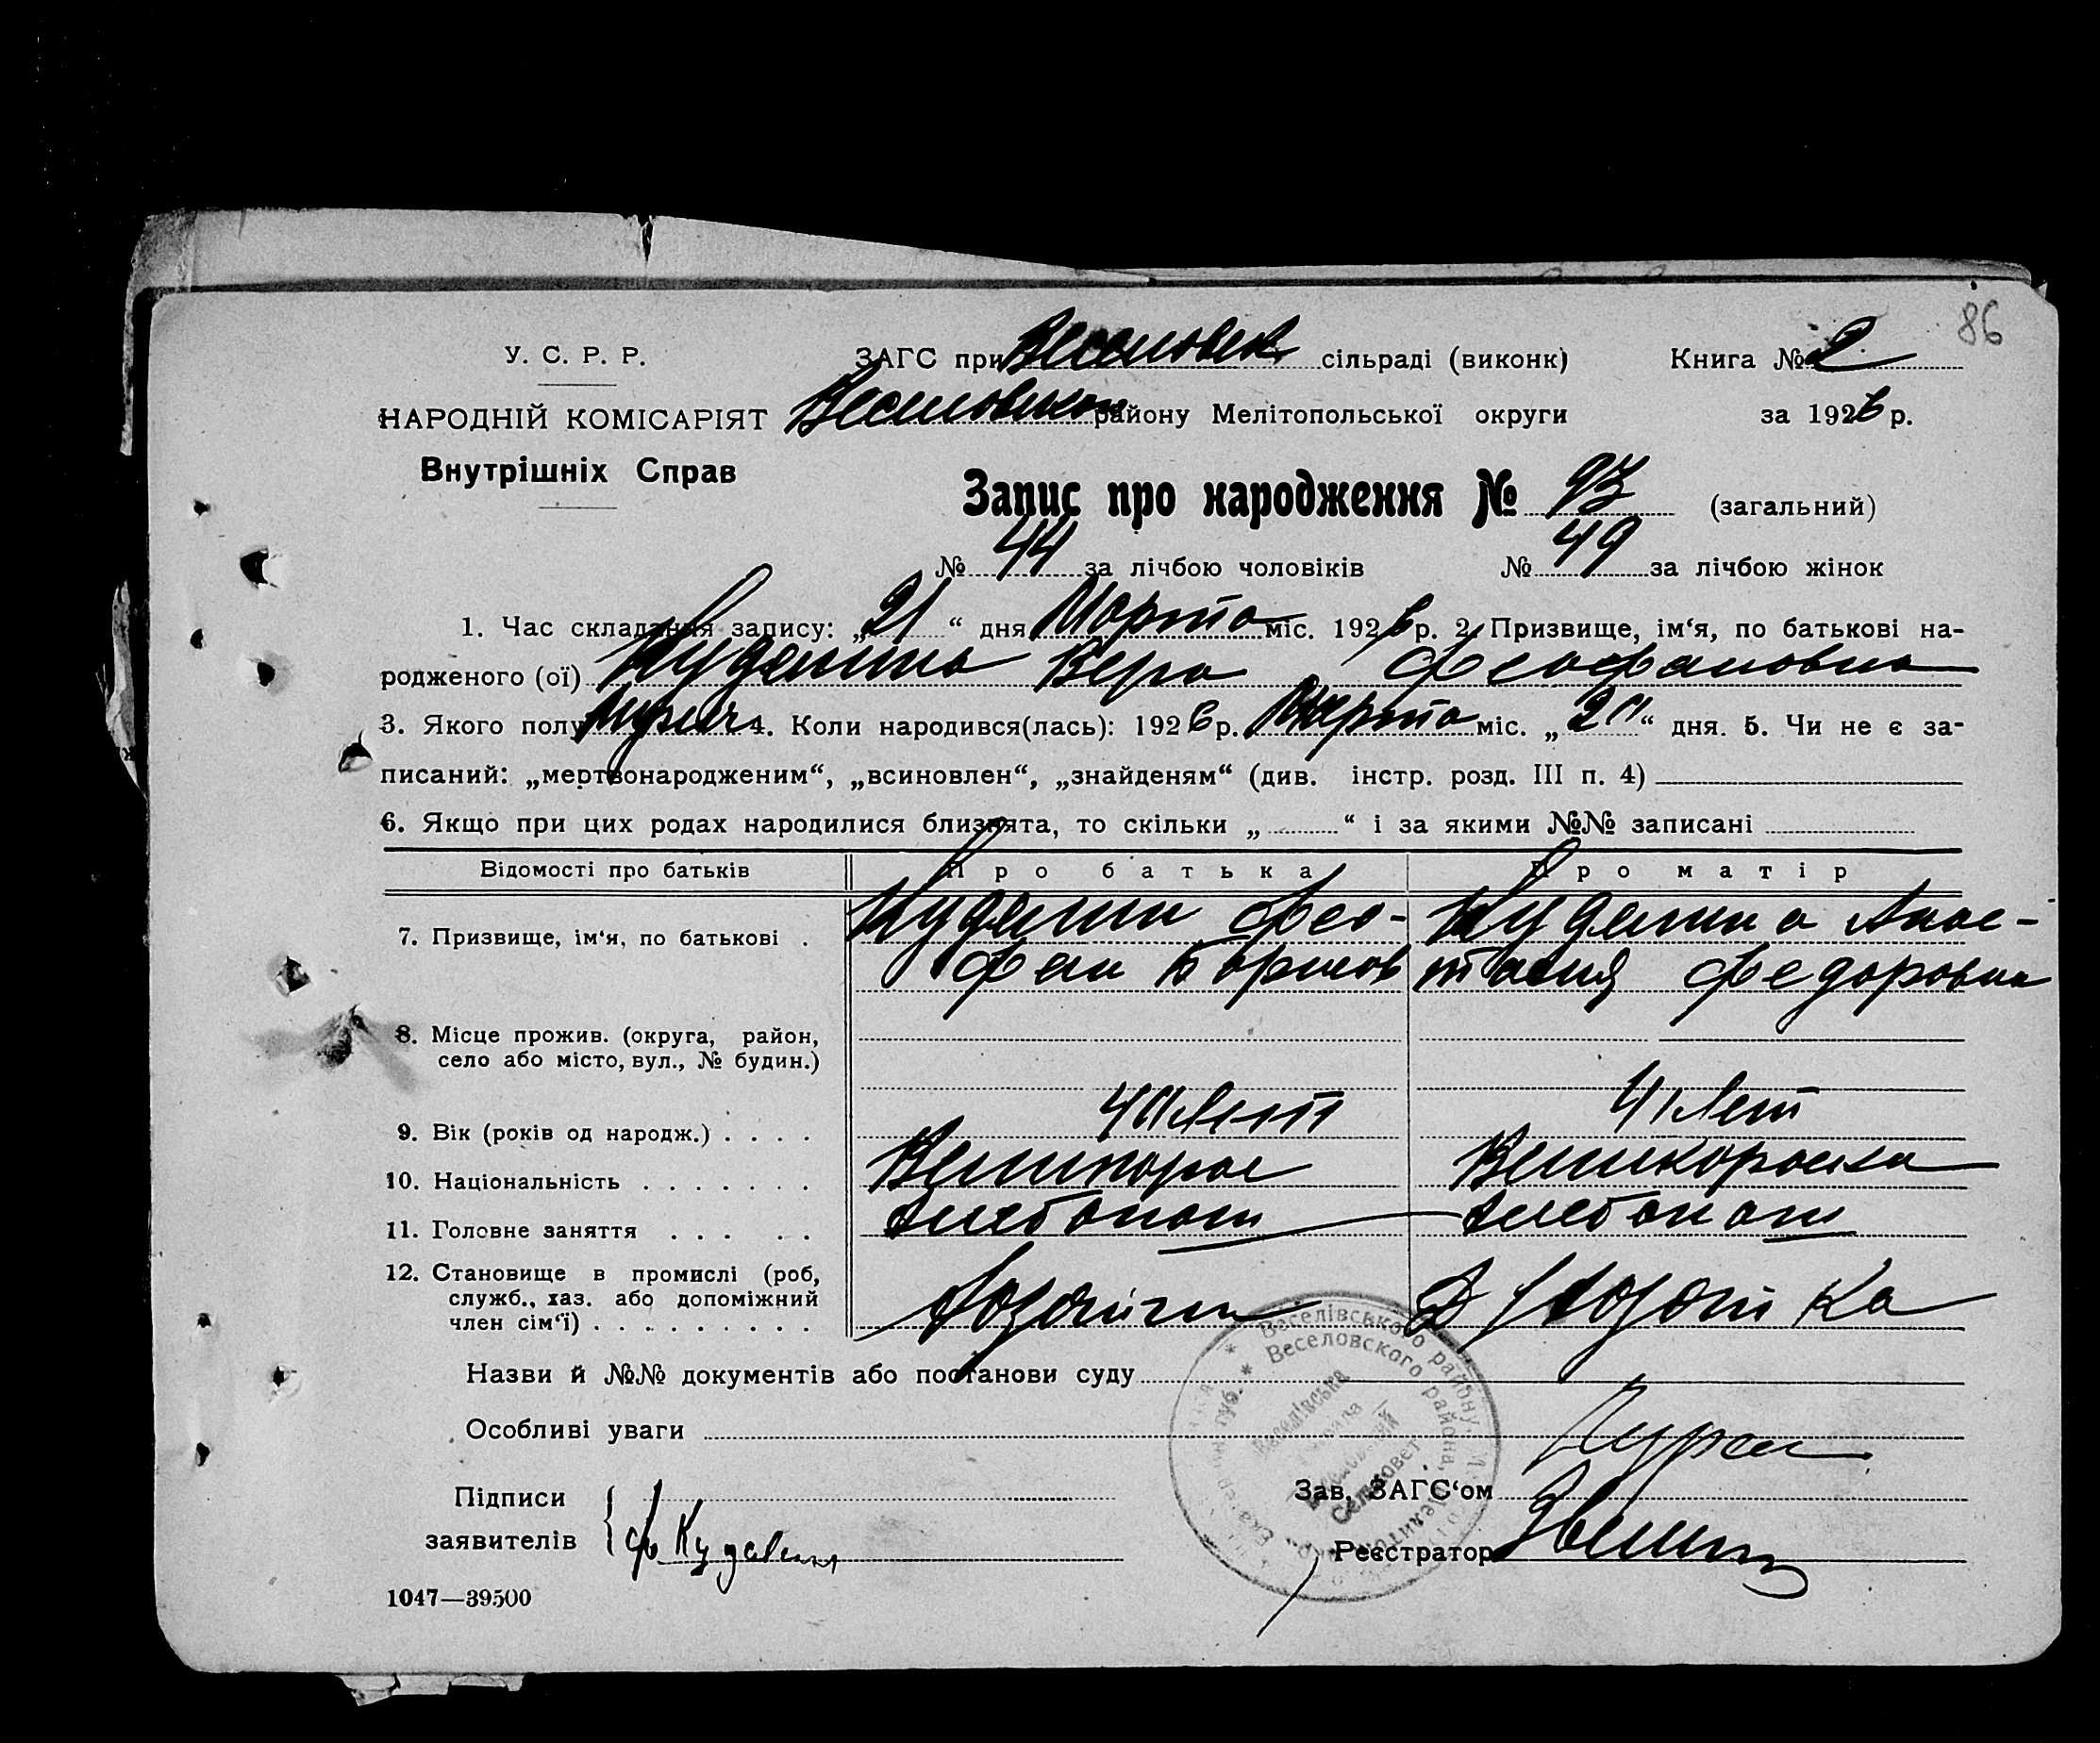 86
У. С. Р. Р.
ЗАГС при Веселовск сільраді (виконк)
Книга № 2
НАРОДНІЙ КОМІСАРІЯТ
Веселовском району Мелітопольської округи
за 1926 р.
Внутрішніх Справ
Запис про народження № 93 (загальний)
№ 44 за лічбою чоловіків № 49 за лічбою жінок
1. Час складання запису: „21“ дня Марта міс. 1926 р. 2. Призвище, ім‘я, по батькові на-
родженого (ої) Вера Феофановна
3. Якого полу 4. Коли народився(лась): 1926 р. Марта міс. „20“ дня. 5. Чи не є за-
писаний: „мертвонародженим“, „всиновлен“, „знайденям“ (див. інстр. розд. III п. 4)
6. Якщо при цих родах народилися близнята, то скільки „ “ і за якими №№ записані
Відомості про батьків Про батька Про матір
7. Призвище, ім‘я, по батькові . Фео- Анас-
фан тасия Федоровна
8. Місце прожив. (округа, район,
село або місто, вул., № будин.)
9. Вік (років од народж.) . . . . 40 лет 41 лет
10. Національність . . . . . . . Великорос Великороска
11. Головне заняття . . . . . Хлебопаш Хлебопаш
12. Становище в промислі (роб,
служб., хаз. або допоміжний
член сім‘ї) . . . . . . . . . Хозяин
Веселівського району
Веселовского района
Назви й №№ документів або постанови суду
Особливі уваги
Підписи
Зав. ЗАГС‘ом
заявителів Ф
Реєстратор
1047—39500